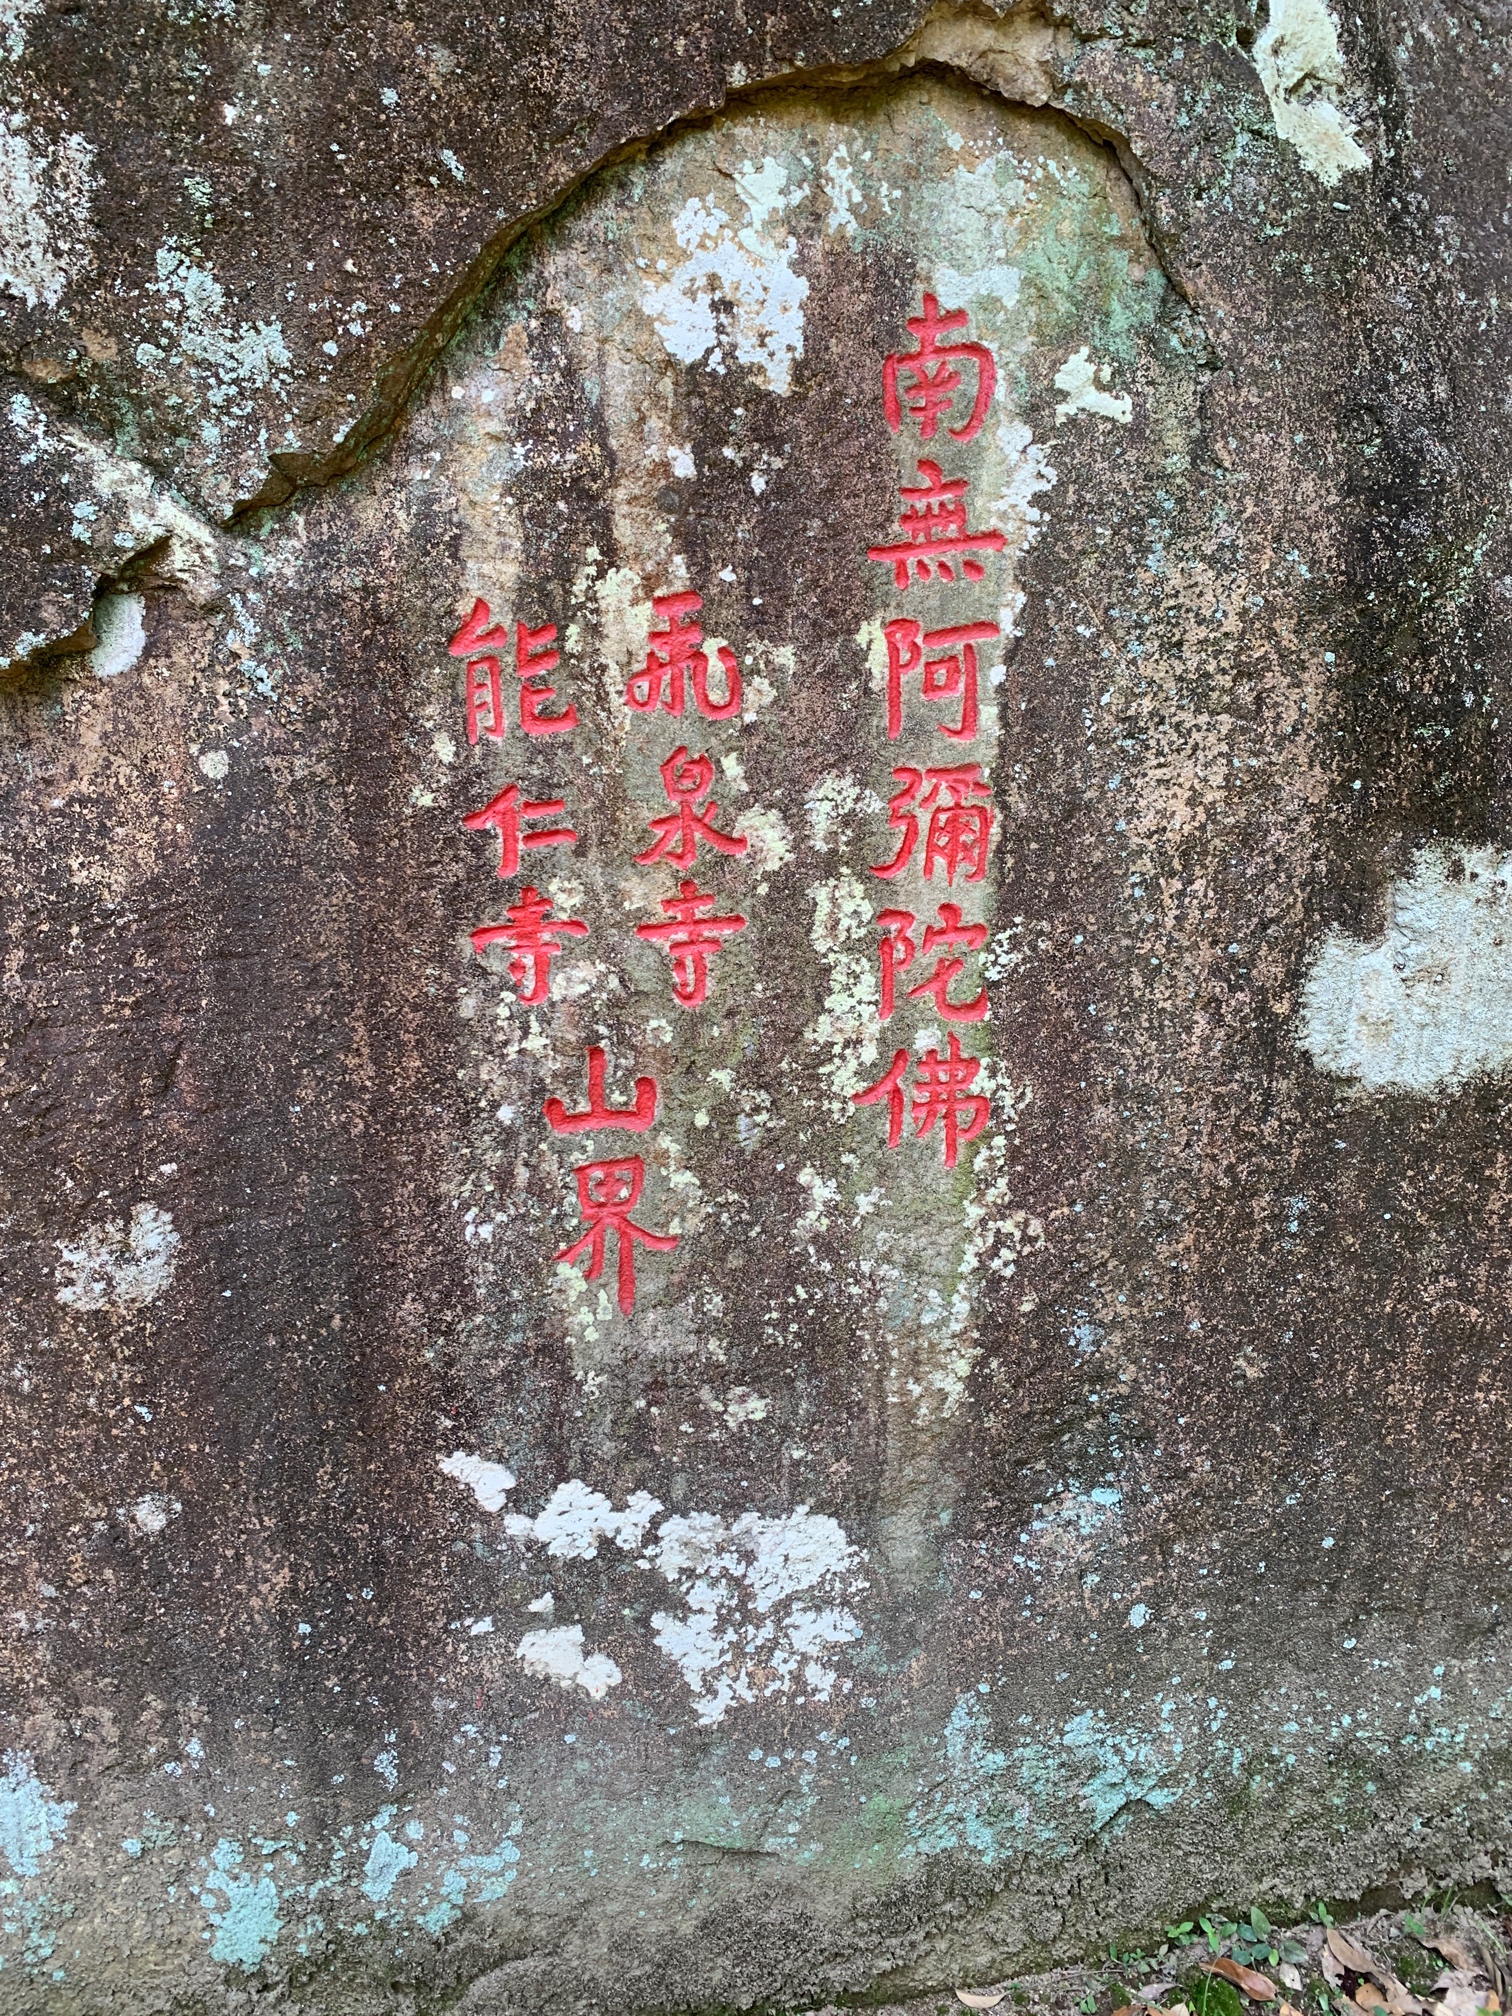 南無阿彌陀佛
飛泉寺
能仁寺
山界